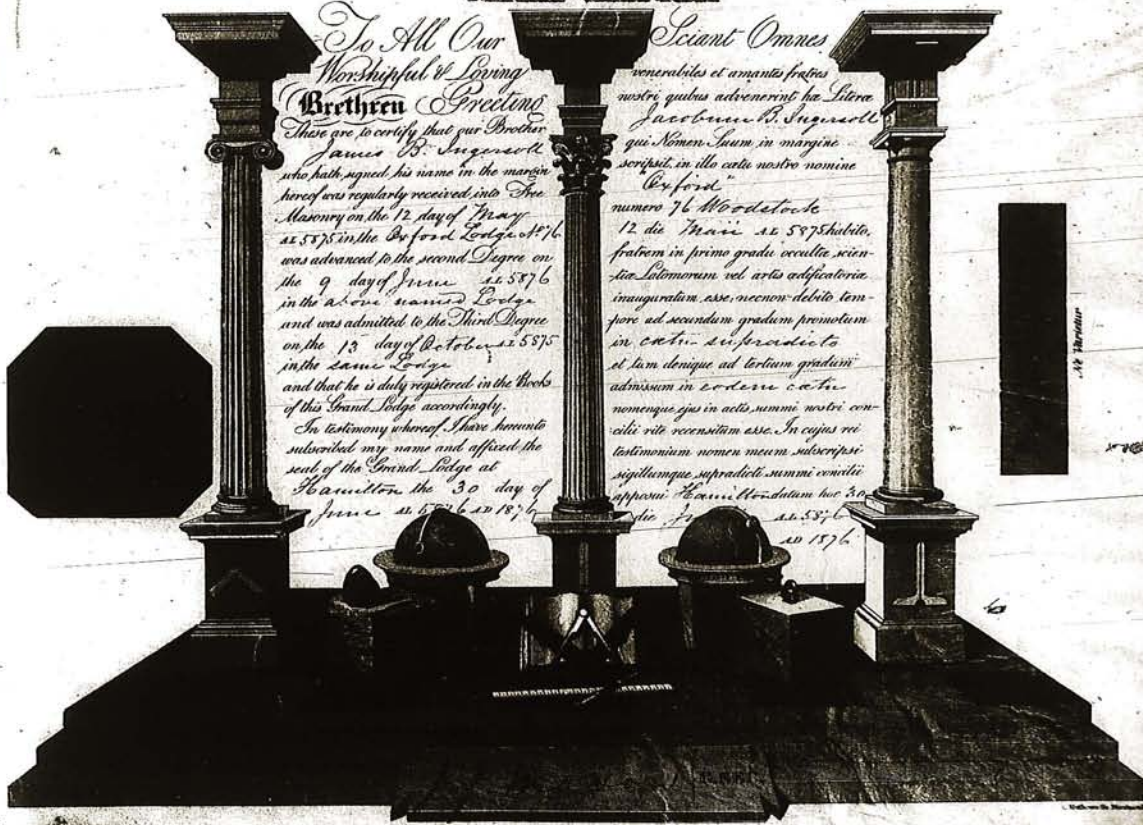 To All Our
Worshipful & Loving
Brethren Greeting
These are to certify that our Brother
James B. Ingersoll
who hath signed his name in the margin
hereof was regularly received into Free
Masonry on the 12 day of May
AL 5875 in the Oxford Lodge No 76
was advanced to the second Degree on
the 9 day of June AL 5876
in the above named Lodge
and was admitted to the Third Degree
on the 13 day of October AL 5875
in the same Lodge
and that he is duly registered in the Books
of this Grand Lodge accordingly.
In testimony whereof I have hereunto
subscribed my name and affixed the
seal of the Grand Lodge at
Hamilton the 30 day of
June AL 5876 AD 1876
Sciant Omnes
venerabiles et amantes fratres
nostri quibus advenerint hæ Literæ
Jacobum B. Ingersoll
qui Nomen Suum in margine
scripsit, in illo cœtu nostro nomine
"Oxford"
numero 76 Woodstock
12 die Maii AL 5875 habito,
fratrem in primo gradu occultæ scien-
tiæ Latomorum vel artis ædificatoriæ
inauguratum esse; necnon debito tem-
pore ad secundum gradum promotum
in cœtu supradicto
et tum denique ad tertium gradum
admissum in eodem cœtu
nomenque ejus in actis summi nostri con-
cilii rite recensitum esse. In cujus rei
testimonium nomen meum subscripsi
sigillumque supradicti summi concilii
apposui Hamilton datum hoc 30
die AL 5876
AD 1876
Ne Varietur